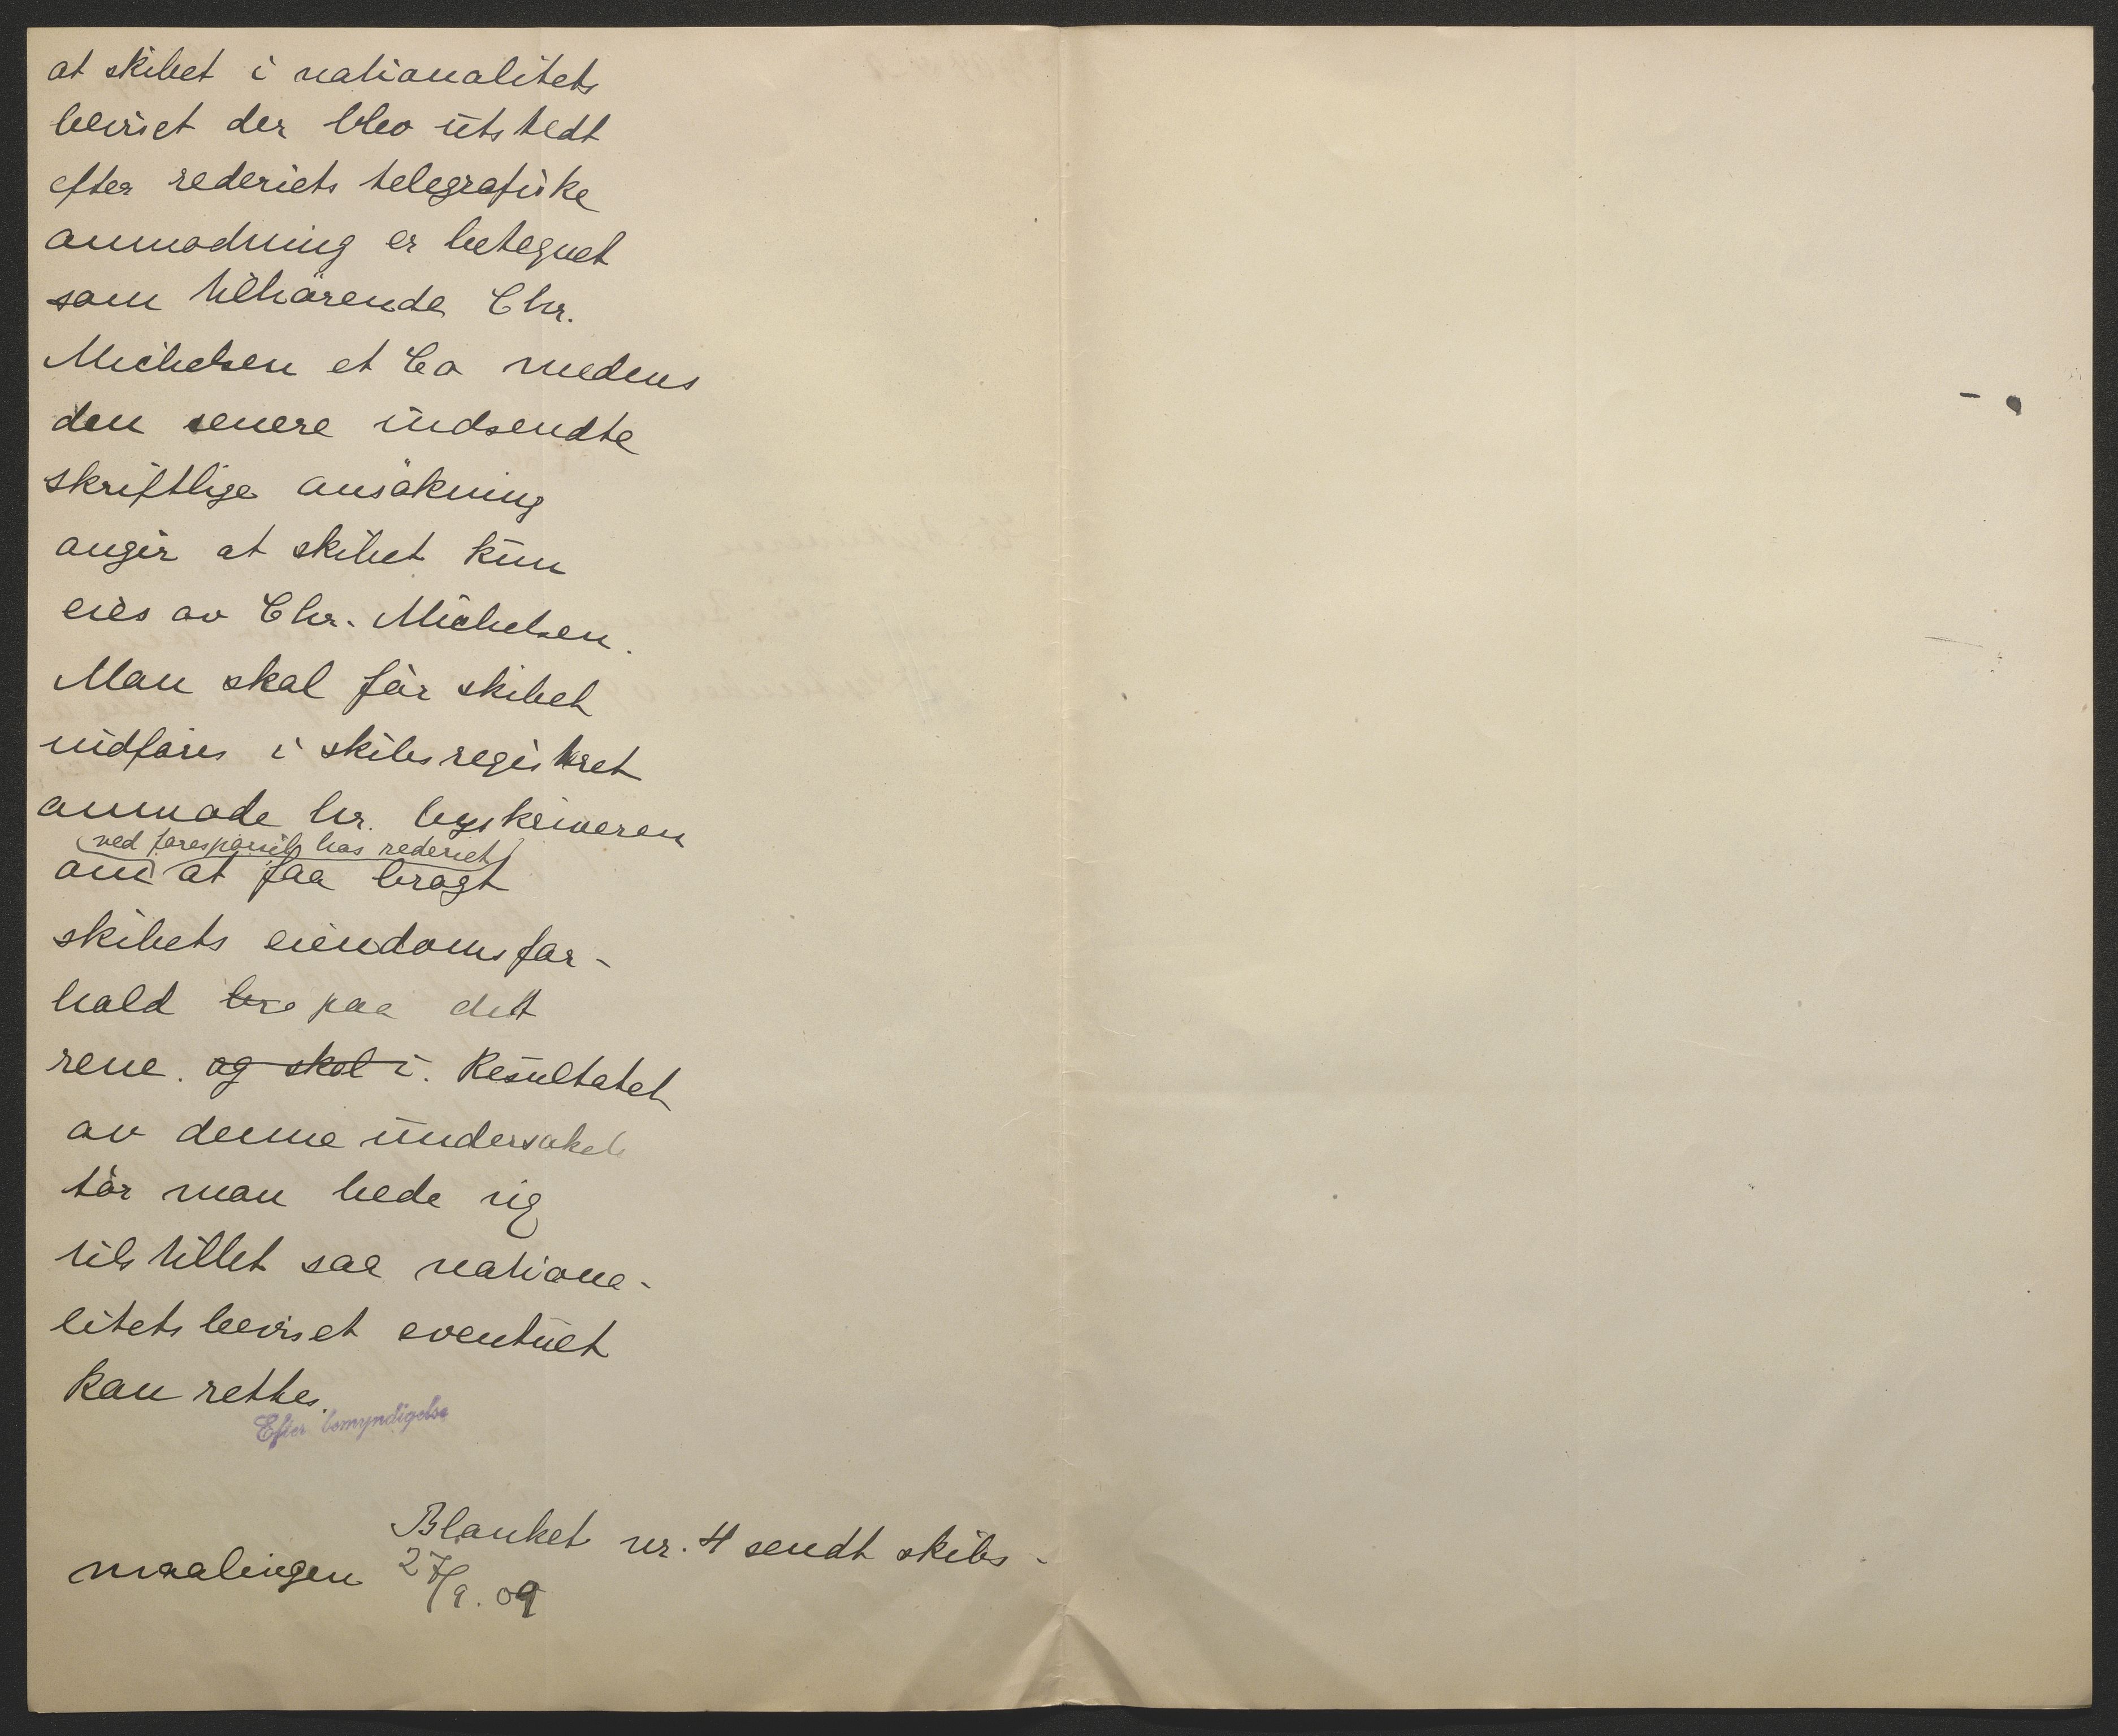 at skibet i nationalitets
beviset der blev utstedt
efter rederiets telegrafiske
anmodning er betegnet
som tilhörende Chr.
Michelsen et Co medens
den senere indsendte
skriftlige ansökning
angir at skibet kun
eies av Chr. Michelsen.
Man skal för skibet
indföres i skibsregistret
anmode hr. byskriveren
ved forespörsel hos rederiet
om at faa bragt
skibets eiendomsfor-
hold bre paa det
rene. og skal i. Resultatet
av denne undersøkelse
tör man bede sig
tilstillet saa nationa-
litetsbeviset eventuelt
kan rettes.
Efter bemyndigelse
Blanket nr. 4 sendt skibs-
maalingen 27/9. 09